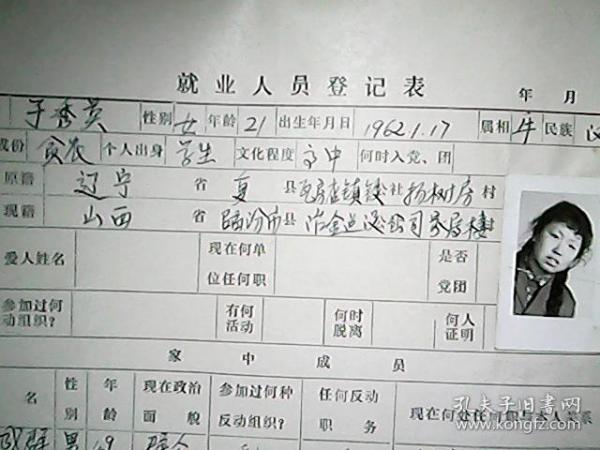 就业人员登记表
年 月
于秀英 性别 女 年龄 21 出生年月日 1962.1.17 属相 牛 民族
成份 贫农 个人出身 学生 文化程度 高中 何时入党、团
原籍 辽宁 省 复 县 瓦房店镇 社 杨树房 村
现籍 山西 省 临汾市 县 冶金 公司家属楼 村
爱人姓名 现在何单位任何职 是否党团
参加过何动组织？ 有何活动 何时脱离 何人证明
家中成员
名 性别 年龄 现在政治面貌 参加过何种反动组织？ 任何反动职务 现在何处任何职与本人关系
男 19
孔夫子旧书网
www.kongfz.com